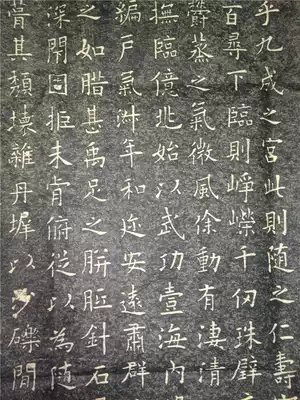 乎九成之宮此則隨之仁壽
百尋下臨則崢嶸千仞珠璧
欝蒸之氣微風徐動有淒清
撫臨億兆始以武功壹海內
編戶氣淑年和迩安遠肅群
之如腊甚禹足之胼胝針石
深閇固拒未肯俯從以為隨
葺其頹壞雜丹墀以沙礫閒